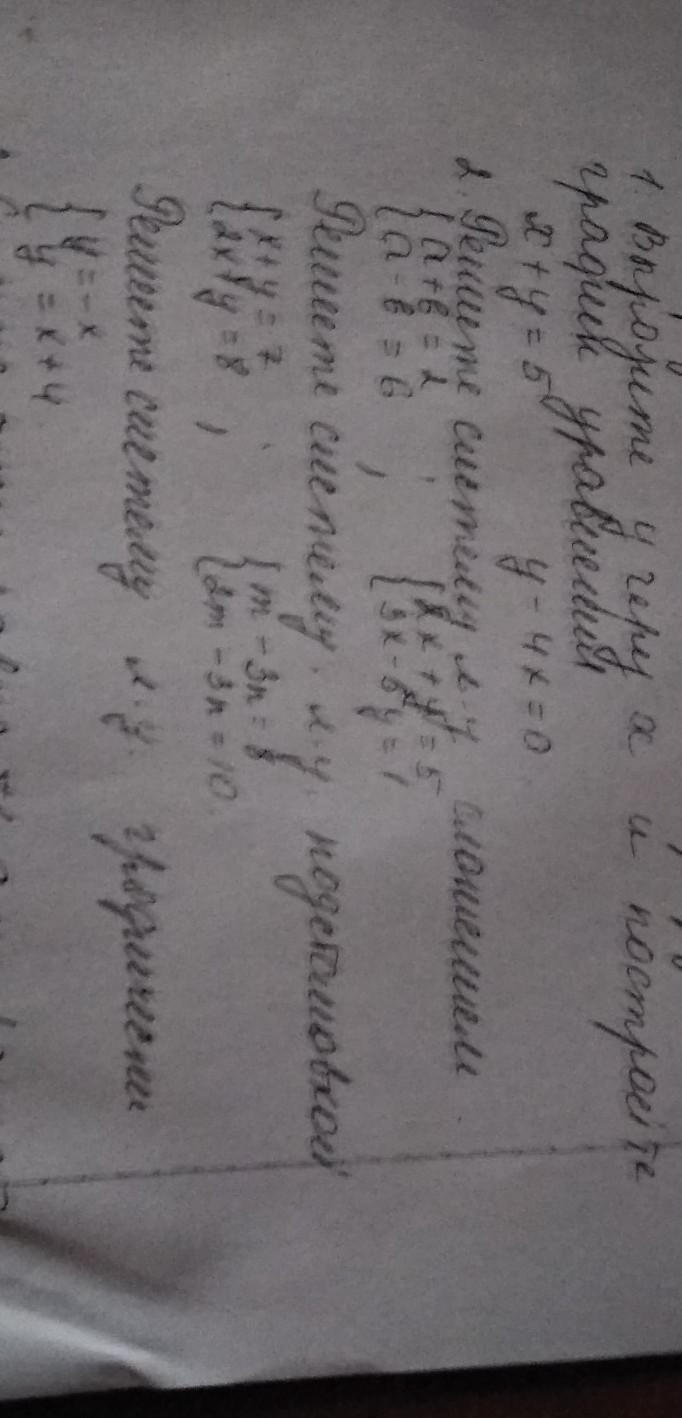 1. Выразите у через х и постройте
график уравнения
x + y = 5 y - 4x = 0.
2. Решите систему л.у сложением
{ a + b = 2 a - b = 6 , { 2x + y = 5 3x - 5y = 1
Решите систему л.у. подстановкой
{ x + y = 7 2x + y = 8 , { m - 3n = 8 2m - 3n = 10.
Решите систему л.у. графически
{ y = -x y = x + 4.